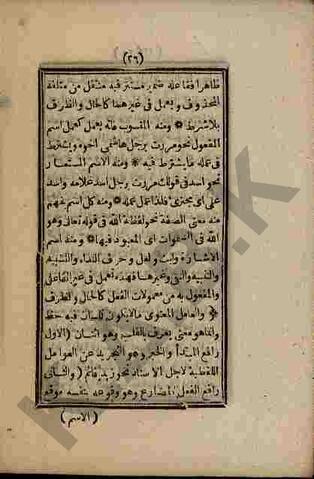 (٢٦)
ظاهرا فاعله ضمير مستتر فيه منتقل من متعلقه
المحذوف ويعمل فى غيرهما كالحال والظرف
بلا شرط * ومنه المنسوب فانه يعمل كعمل اسم
المفعول نحو مررت برجل هاشمى اخوه ويشترط
فى عمله ما يشترط فيه * ومنه الاسم المستعار
نحو اسد فى قولك مررت برجل اسد غلامه واسد
على اى مجترئ فلذا عمل عمله * ومنه كل اسم يفهم
منه معنى الصفة نحو لفظة الله فى قوله تعالى وهو
الله فى السموات اى المعبود فيها * ومنه اسم
الاشارة وليت ولعل وحرف النداء والتشبيه
والتنبيه والنفى وغيرها فهذه تعمل فى غير الفاعل
والمفعول به من معمولات الفعل كالحال والظرف
* والعامل المعنوى مالايكون للسان فيه حظ
وانما هو معنى يعرف بالقلب وهو اثنان (الاول
رافع المبتدأ والخبر وهو التجريد عن العوامل
اللفظية لاجل الاسناد نحو زيد قائم (والثانى
رافع الفعل المضارع وهو وقوعه بنفسه موقع
(الاسم)